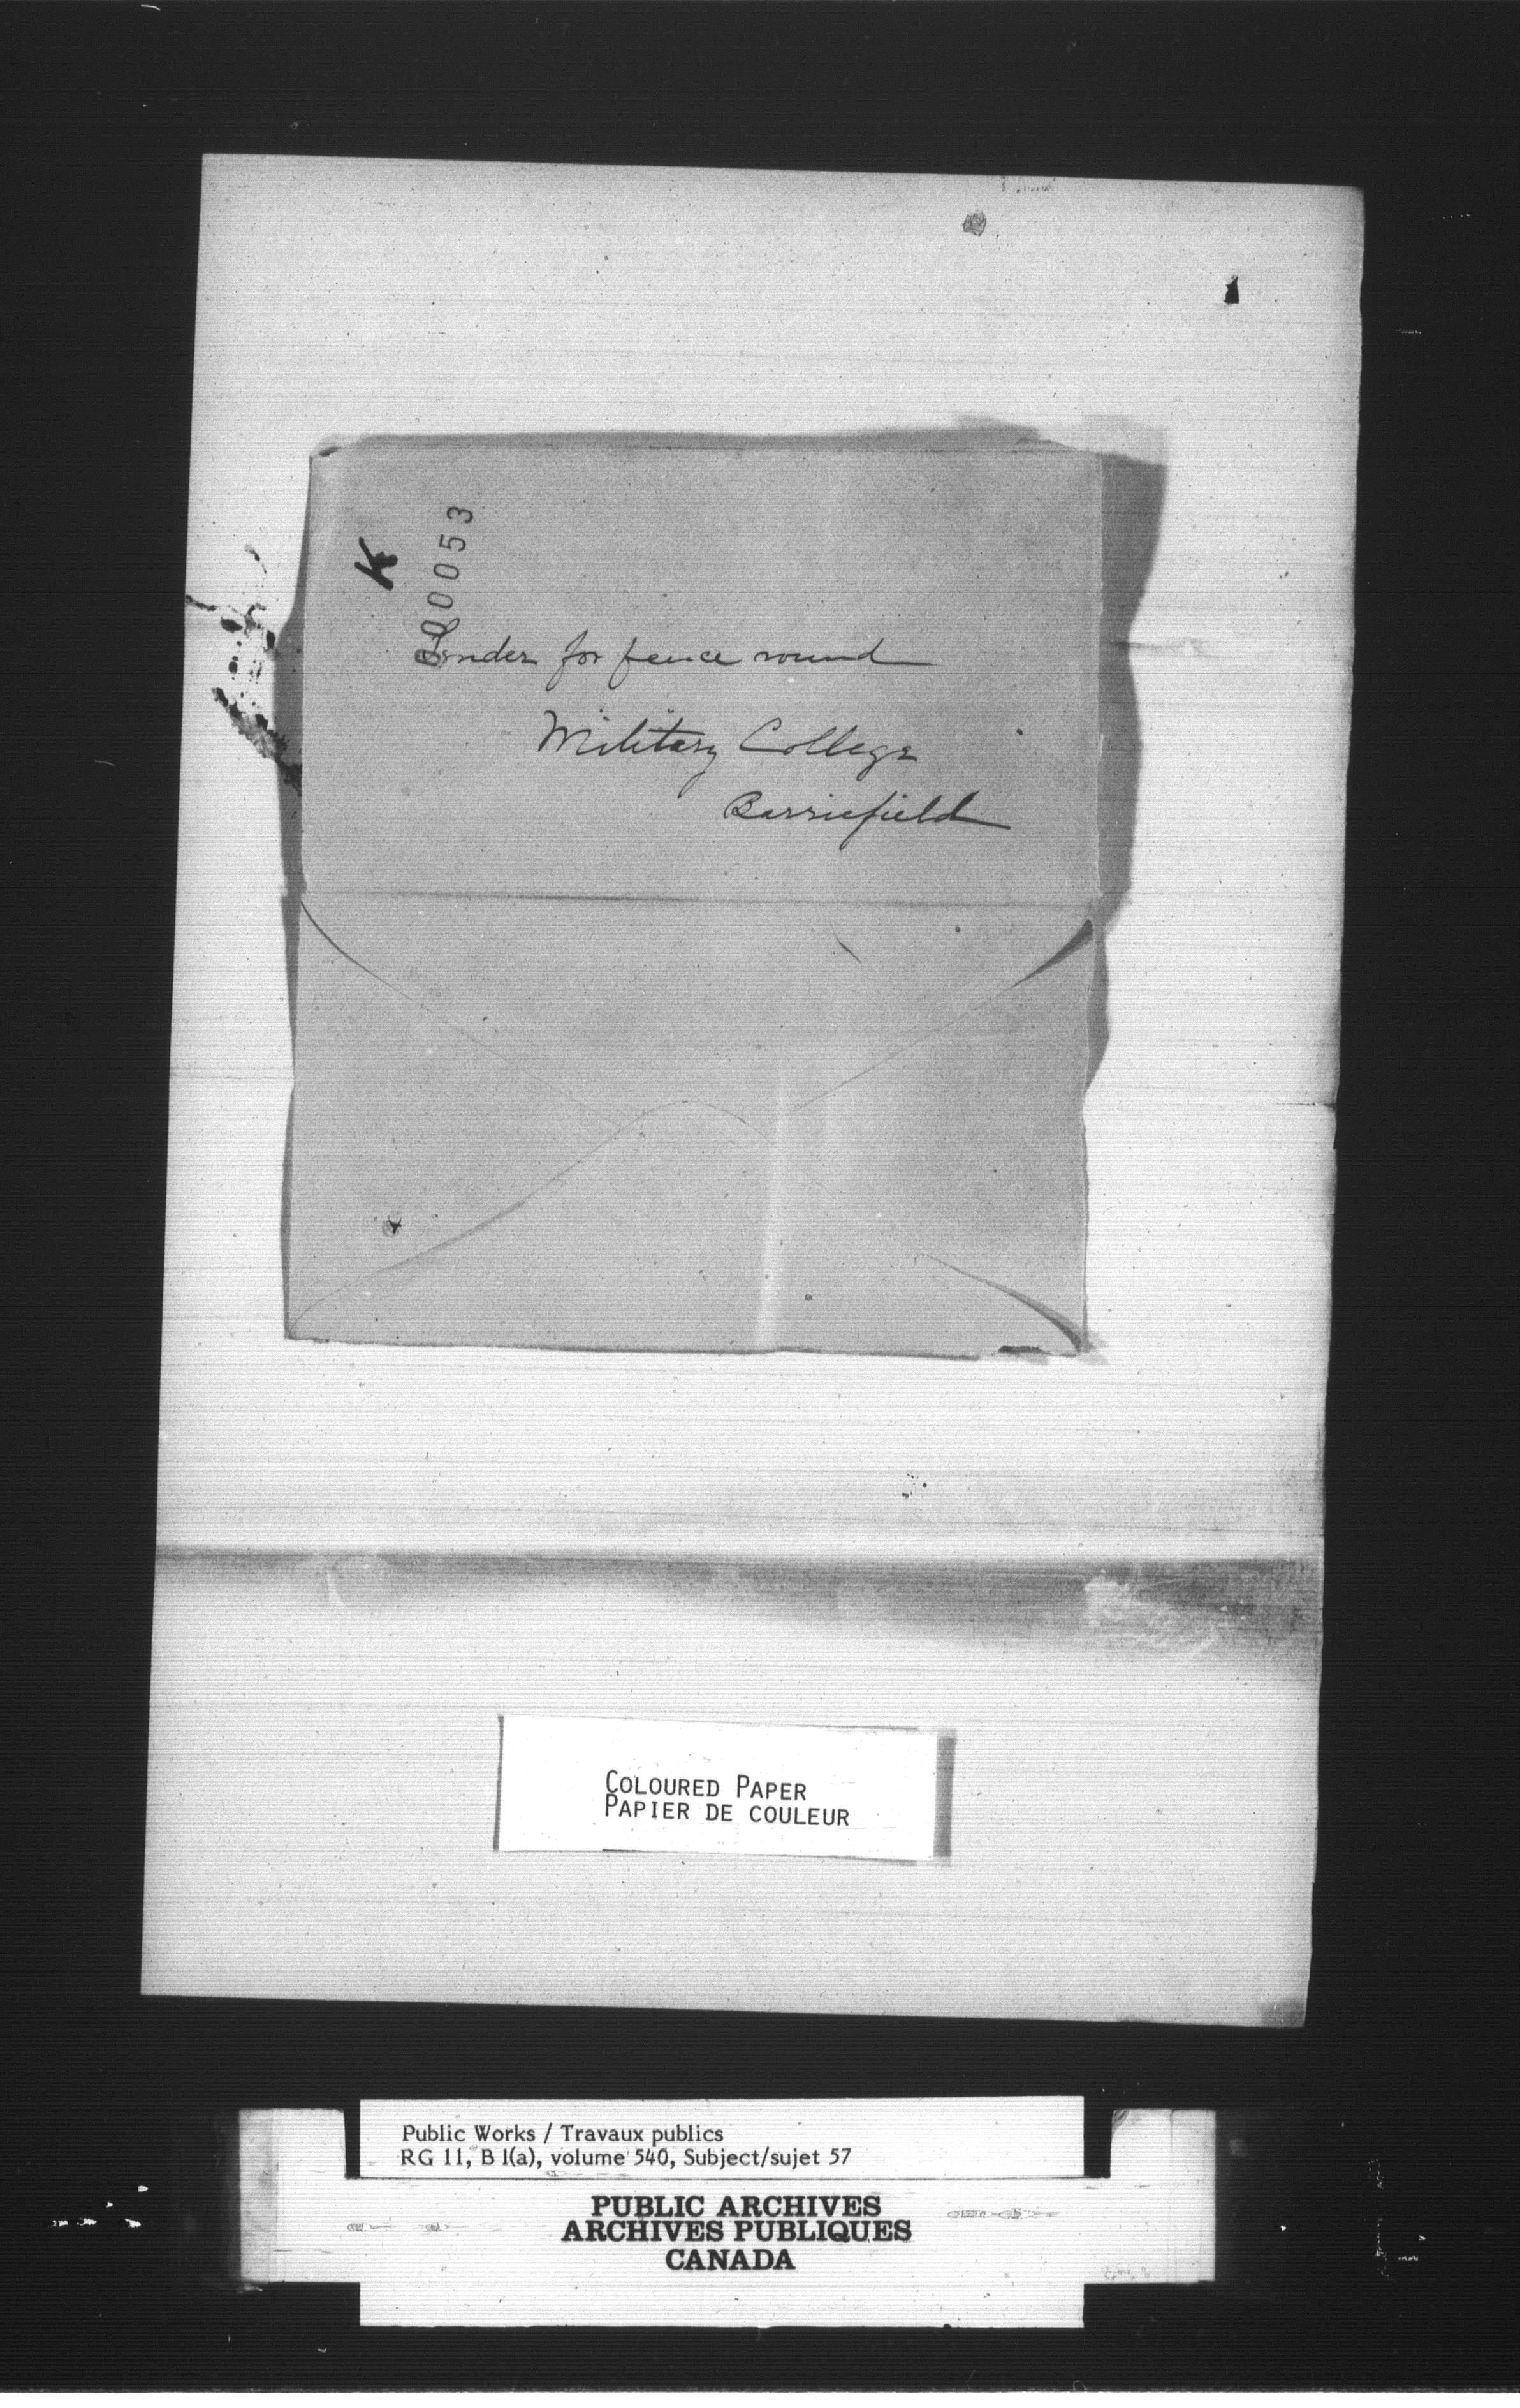 K
000053
Tender for fence round
Military College
Barriefield
COLOURED PAPER
PAPIER DE COULEUR
Public Works / Travaux publics
RG 11, B 1(a), volume 540, Subject/sujet 57
PUBLIC ARCHIVES
ARCHIVES PUBLIQUES
CANADA